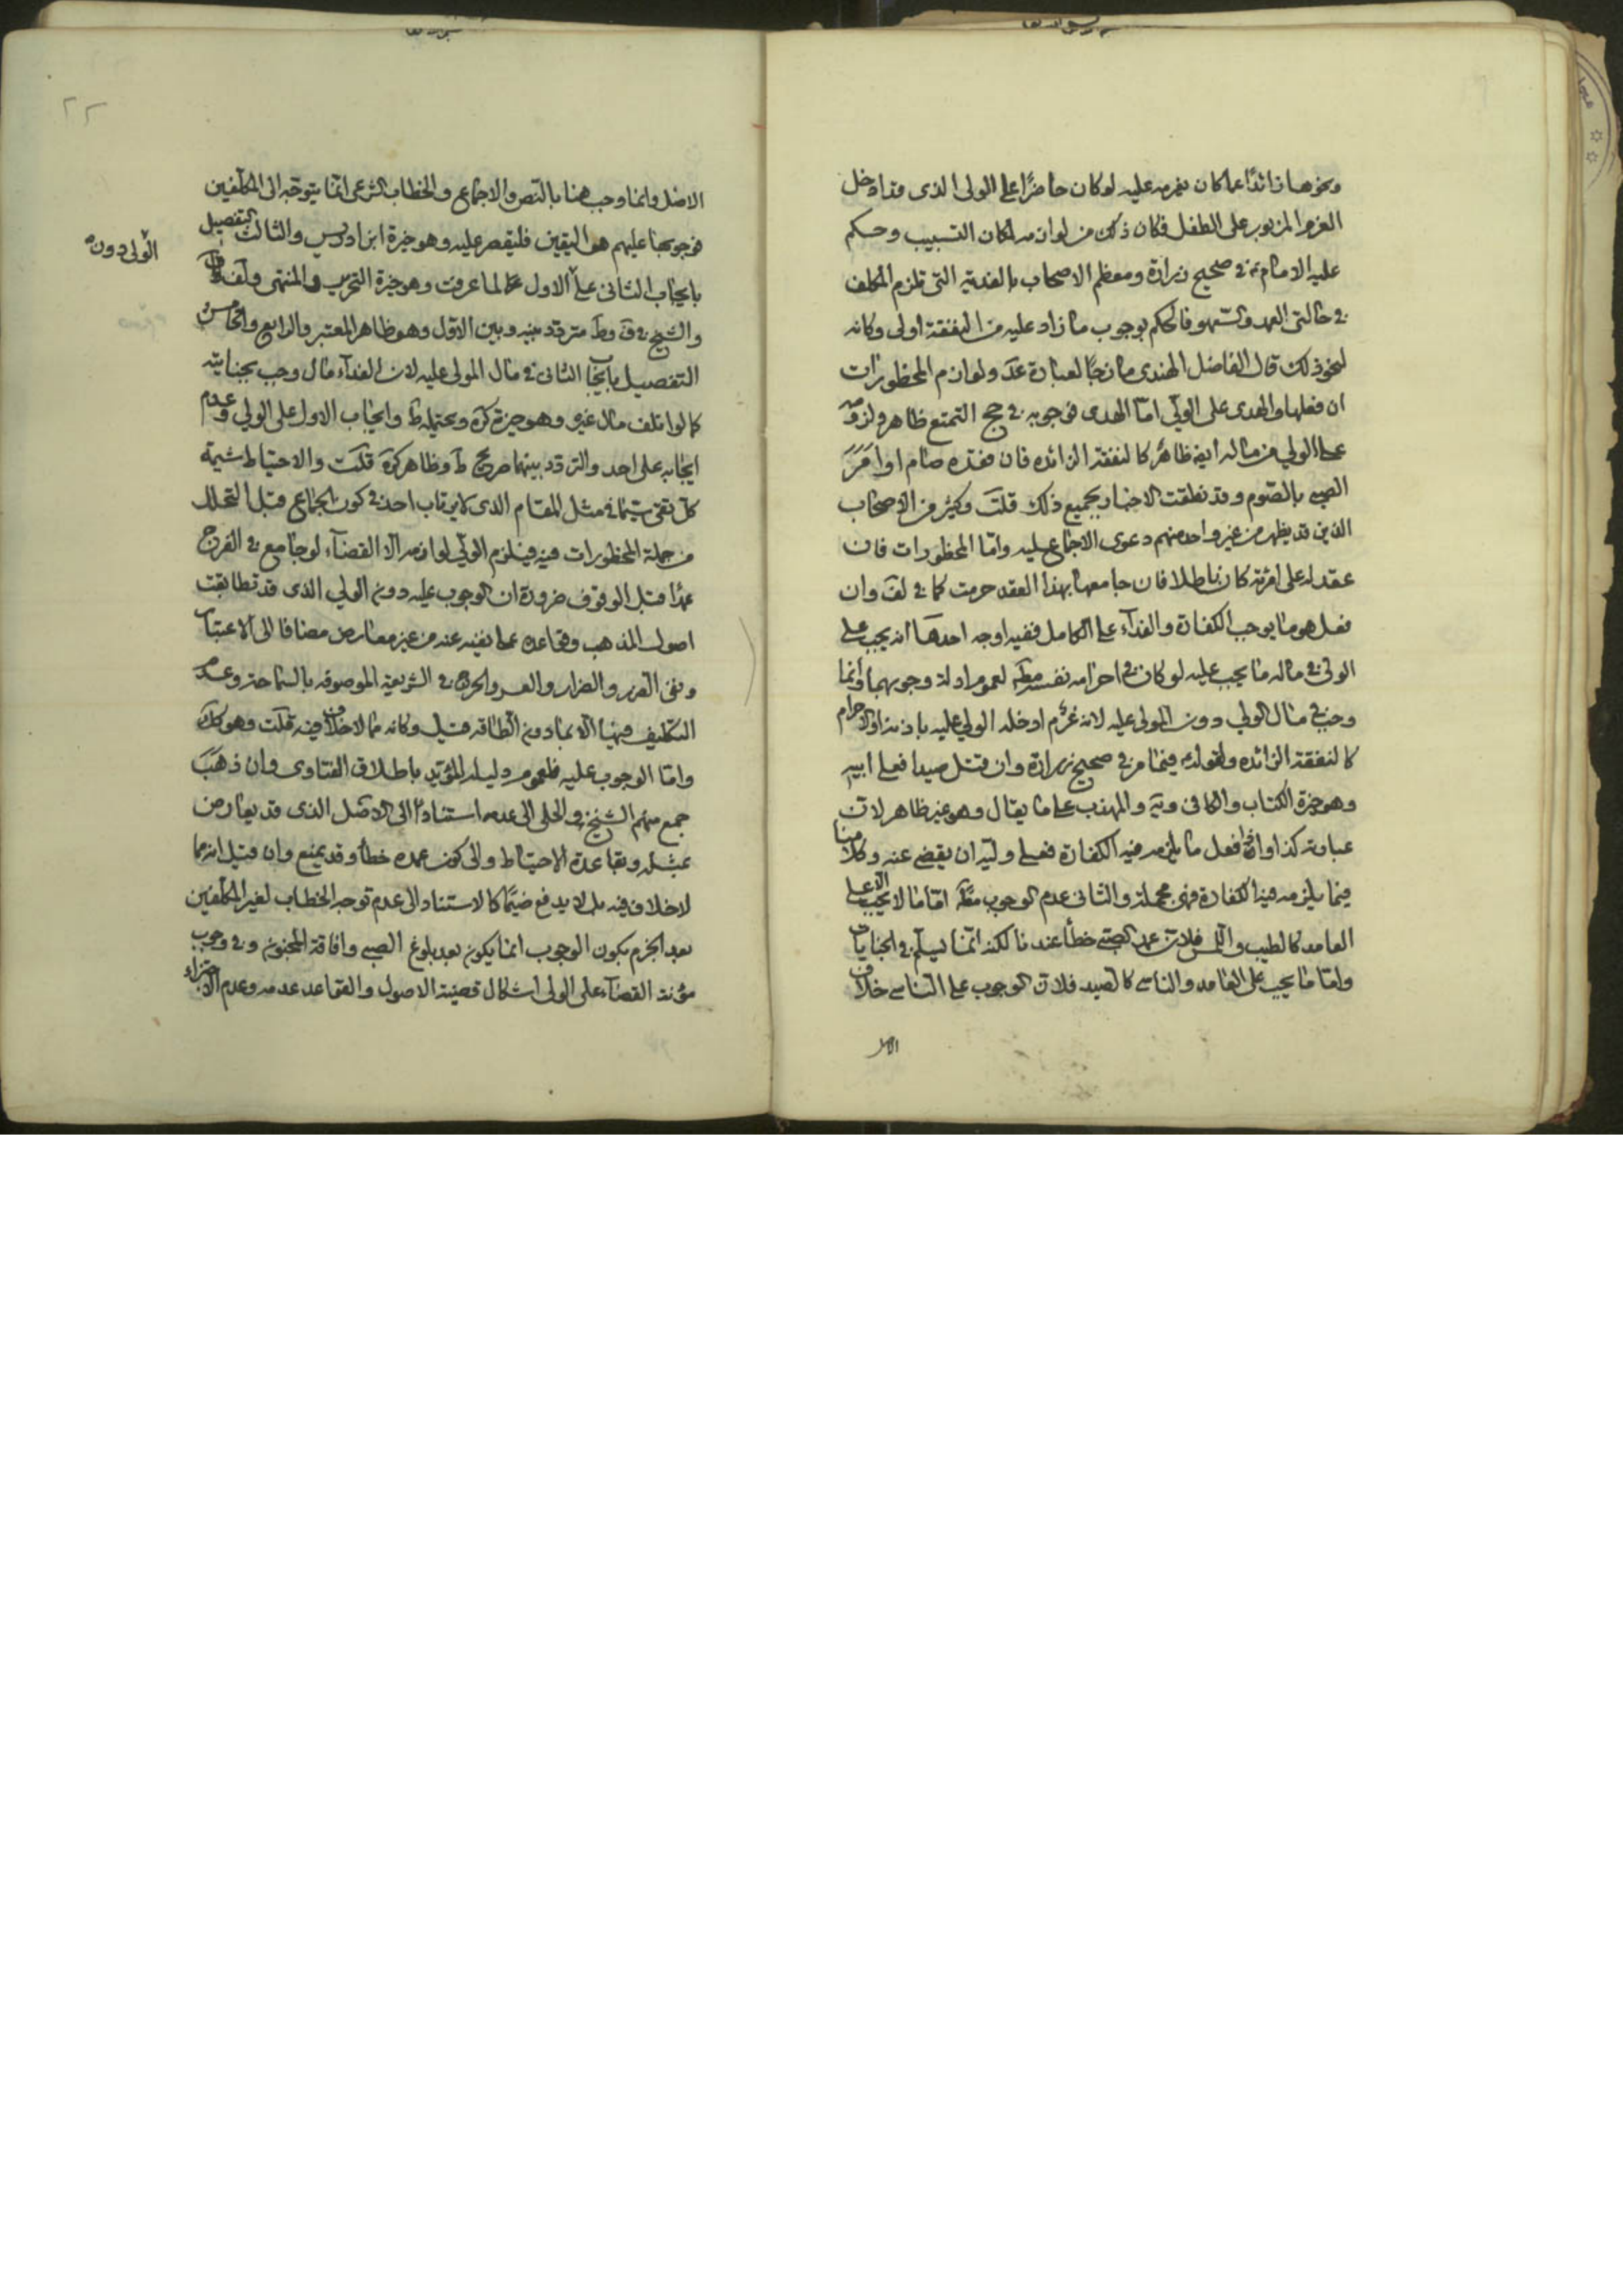 ونحوها زائدًا عما كان يغرمه عليه لو كان حاضرًا على الولي الذي قد ادخل
الغرم المزبور على الطفل فكان ذلك من لوازمه لمكان التسبيب وحكم
عليه الامام ع في صحيح زرارة ومعظم الاصحاب بالفدية التي تلزم المكلف
في حالتي العمد والسهو فالحكم بوجوب ما زاد عليه من النفقة اولى وكانه
لنحو ذلك قال الفاضل الهندي مازجًا لعبارة عد ولوازم المحظورات
ان فعلها والهدي على الولي اما الهدي فوجوبه في حج التمتع ظاهر ولزومه
على الولي من ماله ايضا ظاهر كالنفقة الزائده فان فقده صام او امر
الصبي بالصوم وقد نطقت الاخبار بجميع ذلك قلت وكثير من الاصحاب
الذين قد يظهر من غير واحد منهم دعوى الاجماع عليه واما المحظورات فان
عقد له على امرئة كان باطلا فان جامعها بهذا العقد حرمت كما في لف وان
فعل هو ما يوجب الكفارة والفدآء على الكامل ففيه اوجه احدها انه يجب على
الولي في ماله ما يجب عليه لو كان في احرامه نفسه مط لعموم ادلة وجوبهما وانما
وجب في مال الولي دون المولى عليه لانه غرم ادخله الولي عليه باذنه او الاحرام
كالنفقة الزائده ولقوله ع فيما مر في صحيح زرارة وان قتل صيدا فعلى ابيه
وهو خيرة الكتاب والكافي ويه والمهذب على ما يقال وهو غير ظاهر لان
عبارته كذا واذا فعل ما يلزمه فيه الكفارة فعلى وليه ان يقضي عنه وكلامنا
فيما يلزمه فيه الكفارة فهي مجملة والثاني عدم الوجوب مط اما ما لا يجب الا على
العامد كالطيب واللبس فلان عمد الصبي خطأ عندنا لكنه انما يسلم في الجنايات
واما ما يجب على العامد والناسي كالصيد فلان الوجوب على الناسي خلاف
الاصل
٢٢
الاصل وانما وجب هنا بالنص والاجماع والخطاب الشرعي انما يتوجه الى المكلفين
فوجوبها عليهم هو اليقين فليقصر عليه وهو خيرة ابن ادريس والثالث التفصيل
الولي دون
بايجاب الثاني على الاول لما عرفت وهو خيرة التحرير والمنتهى ولف
والشيخ في ف وط متردد بينه وبين الاول وهو ظاهر المعتبر والرابع والخامس
التفصيل بايجاب الثاني في مال المولى عليه لان الفدآء مال وجب بجنايته
كما لو اتلف مال غيره وهو خيرة كره ويحتمله ط وايجاب الاول على الولي وعدم
ايجابه على احد والتردد بينهما صريح ط وظاهر كره قلت والاحتياط شيمة
كل تقي سيما في مثل المقام الذي لا يرتاب احد في كون الجماع قبل التحلل
من جملة المحظورات فيه فيلزم الولي لوازمه الا القضآء لو جامع في الفرج
عمدًا قبل الوقوف ضرورة ان الوجوب عليه دون الولي الذي قد تطابقت
اصول المذهب وقواعده على نفيه عنه من غير معارض مضافا الى الاعتبار
ونفي الضرر والضرار والعسر والحرج في الشريعة الموصوفه بالسماحة وعدم
التكليف فيها الا بما دون الطاقه قيل وكانه مما لا خلاف فيه قلت وهو كك
واما الوجوب عليه فلعموم دليله المؤيد باطلاق الفتاوى وان ذهب
جمع منهم الشيخ والحلي الى عدمه استنادًا الى الاصل الذي قد يعارض
بمثله وبقاعدة الاحتياط والى كون عمده خطأ وقد يمنع وان قيل انه مما
لا خلاف فيه بل لا يدفع ضيمًا كالاستناد الى عدم توجه الخطاب لغير المكلفين
بعد الجزم بكون الوجوب انما يكون بعد بلوغ الصبي وافاقة المجنون وفي وجوب
مؤنة القضآء على الولي اشكال قضية الاصول والقواعد عدمه وعدم الاجتزاء